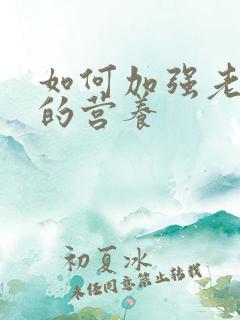 如何加强老
的营养
初夏冰
未经同意禁止转载